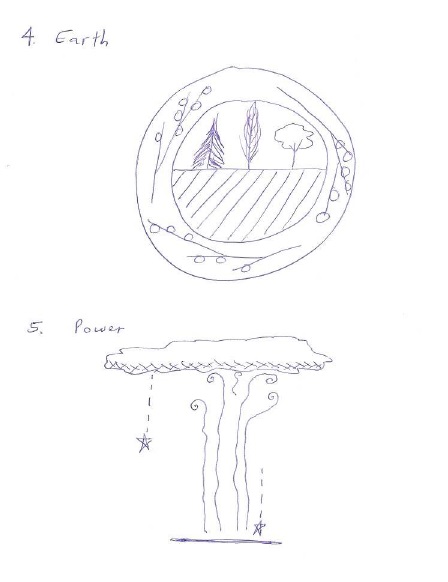 4. Earth
5. Power